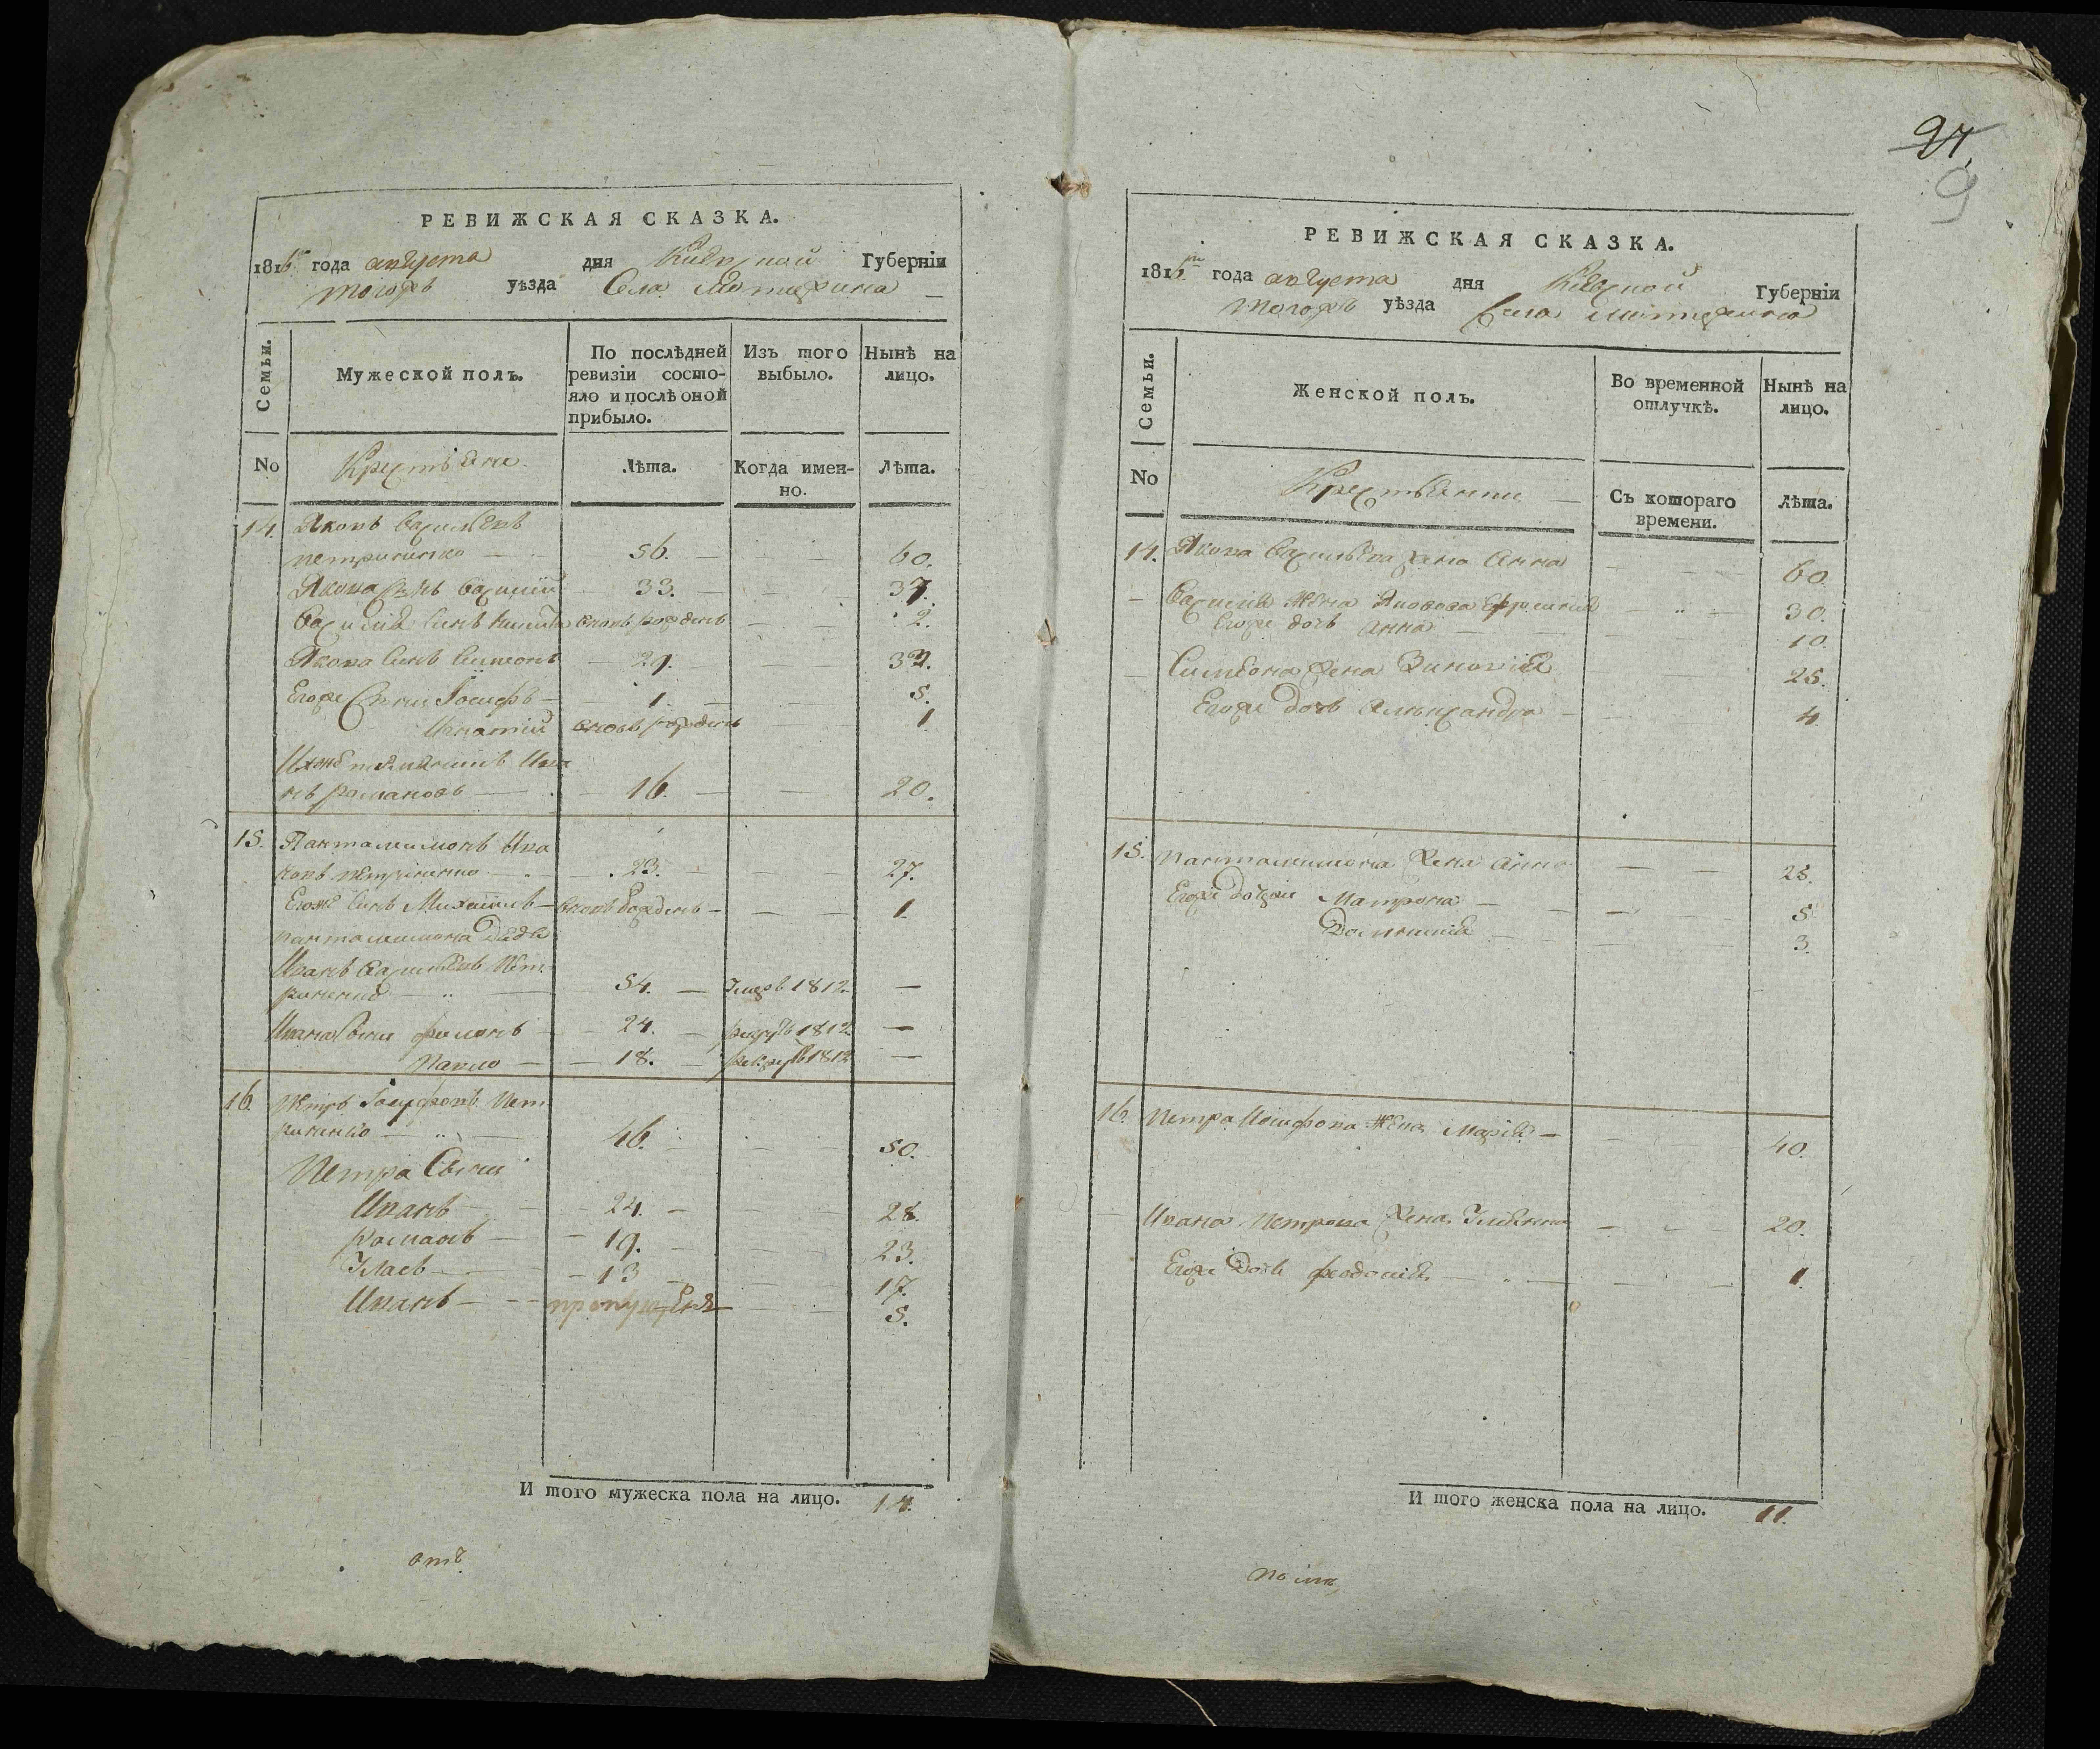 РЕВИЖСКАЯ СКАЗКА.
181 года августа дня Губерніи
уѣзда Села
Семьи.
Мужеской полъ.
По послѣдней ревизіи состояло и послѣ оной прибыло.
Изъ того выбыло.
Нынѣ на лицо.
No Крестьяне Лѣта. Когда именно. Лѣта.
14. Яковъ Васильевъ
петриченко — 56. — 60.
Якова Сынъ Василій 33. — 37.
Василія Сынъ вновь рожденъ 2.
Якова Сынъ Симеонъ 29. 32.
Егоже Сыны Іосифъ — 1 5.
Игнатій вновь рожденъ 1
Ива
нъ романовъ — 16. — 20.
15. Панталеимонъ Ива
новъ петриченко 23. — 27.
Егоже Сынъ Михаилъ — вновь рожденъ — 1
панталеимона Дядя
Иванъ Васильевъ Пет
риченко — 54. — Умеръ 1812. —
Ивана Сыны филонъ — 24. — 1812 —
Павло — 18. — 1812 —
16. Петръ Іосифовъ Пет
риченко — 46. 50.
Петра Сыны
Иванъ — 24. — 28.
романъ — 19. — 23.
— 13 — 17.
Иванъ — пропущенъ — 5.
И того мужеска пола на лицо. 14.
97.
9
РЕВИЖСКАЯ СКАЗКА.
181 года августа дня Губерніи
уѣзда Села
Семьи.
Женской полъ.
Во временной отлучкѣ.
Нынѣ на лицо.
No Крестьянки — Съ котораго времени. Лѣта.
14. Якова Васильева жена Анна 60.
— Василія Жена 30.
Егоже дочь Анна — 10.
— Симеона жена Зиновія 25.
Егоже дочь Александра — 4
15. Панталеимона Жена Анна — 28.
Егоже дочери Матрона — 5
3.
16. Петра Иосифова Жена Марія — 40.
— Ивана Петрова Жена Ульяна — 20.
Егоже Дочь феодосія — 1.
И того женска пола на лицо. 11.